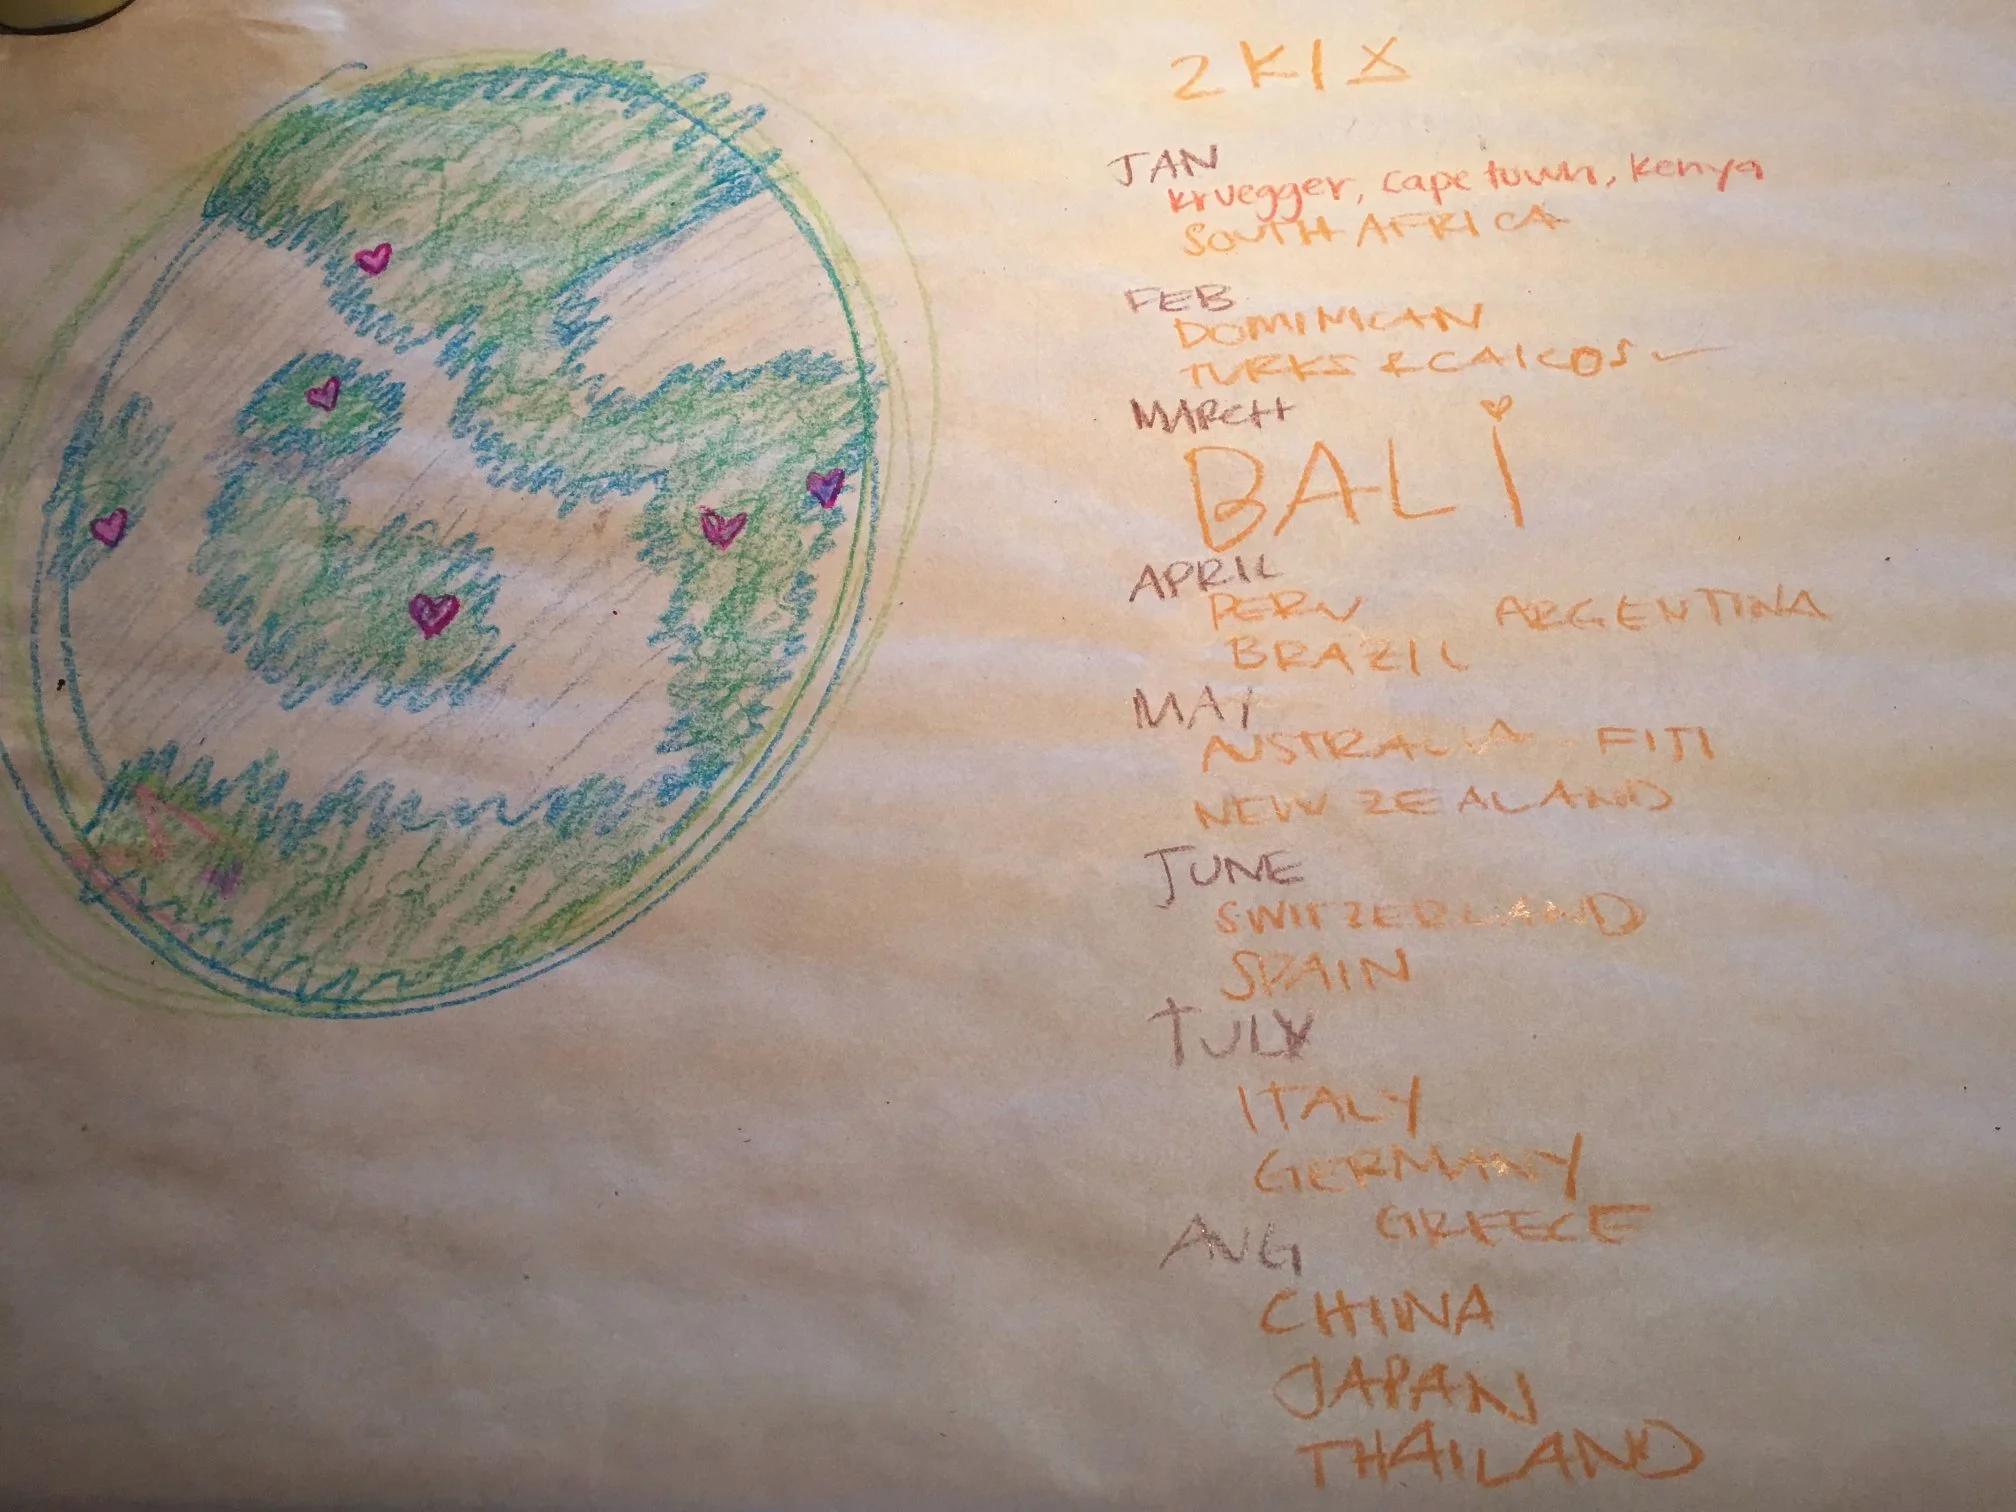 2KIX
JAN
kruegger, cape town, kenya
SOUTH AFRICA
FEB
DOMINICAN
TURKS & CAICOS
MARCH
BALi
APRIL
PERU ARGENTINA
BRAZIL
MAY
AUSTRALIA - FIJI
NEW ZEALAND
JUNE
SWITZERLAND
SPAIN
JULY
ITALY
GERMANY
GREECE
AUG
CHINA
JAPAN
THAILAND